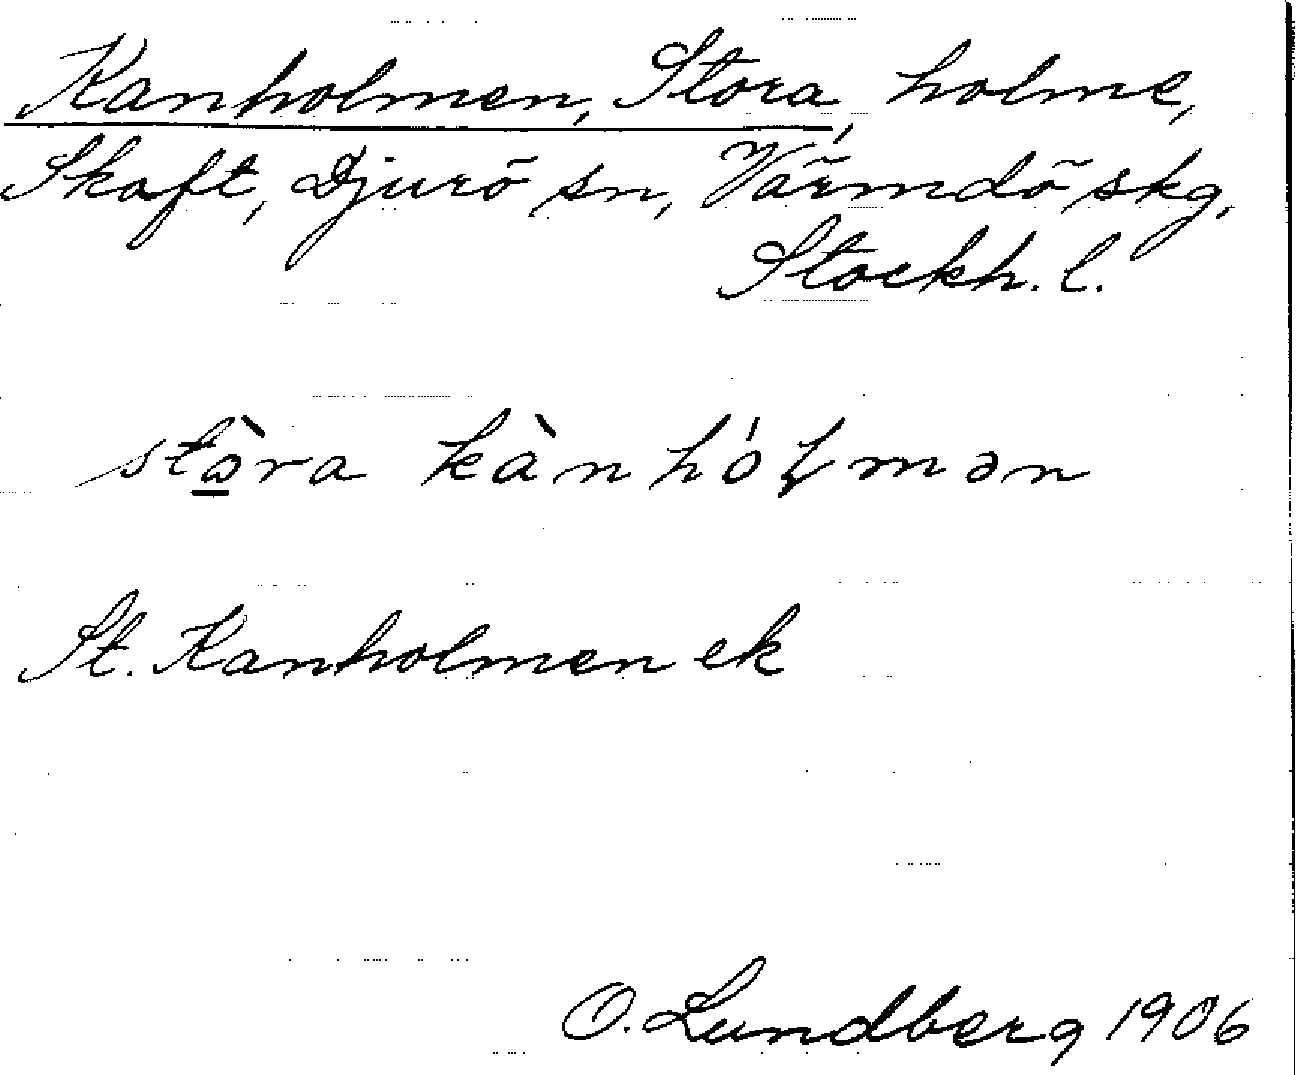 Kanholmen, Stora, holme,
Skaft, Djurö sn, Värmdö skg,
Stockh. l.
stòra kànhóɫmən
St. Kanholmen ek
O. Lundberg 1906